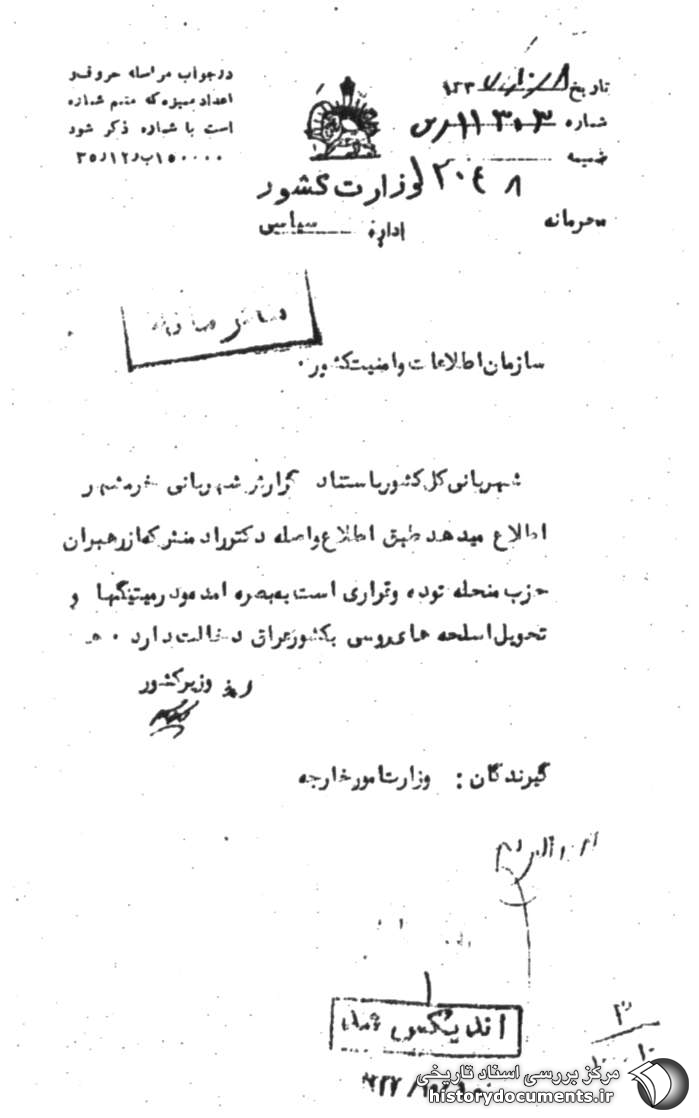 در جواب مراسله حروف و
اعداد ممیزه که منضم شماره
است با شماره ذکر شود
تاریخ ۸/۱۰/۱۳۳۷
شماره ۱۱۳۰۳
ضمیمه
۲۰۴۸
وزارت کشور
محرمانه
اداره سیاسی
سازمان اطلاعات و امنیت کشور.
شهربانی کل کشور باستناد گزارش شهربانی خرمشهر
اطلاع میدهد طبق اطلاع واصله دکتر راد منش که از رهبران
حزب منحله توده و تواری است به بصره امده و در میتینگها و
تحویل اسلحه های روسی بکشور عراق دخالت دارد.
وزیر کشور
گیرندگان : وزارت امور خارجه
اندیکس شد
مرکز بررسی اسناد تاریخی
historydocuments.ir